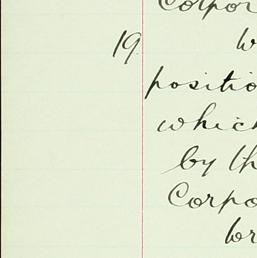 Corpor
19. W
positio
which
by th
Corpo
br